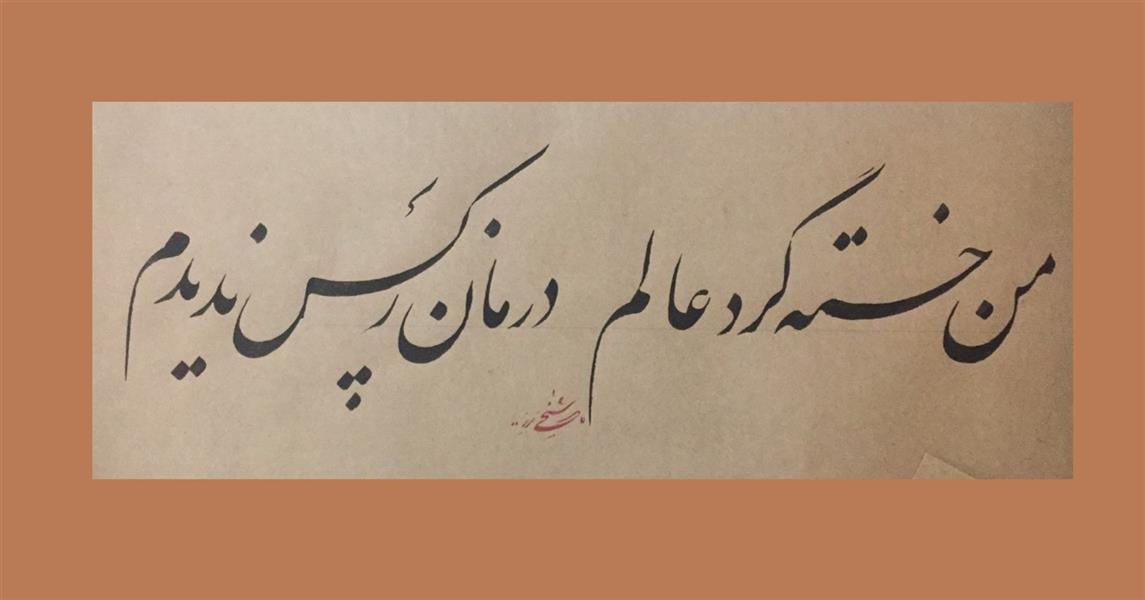 من خسته گرد عالم درمان ز کس ندیدم